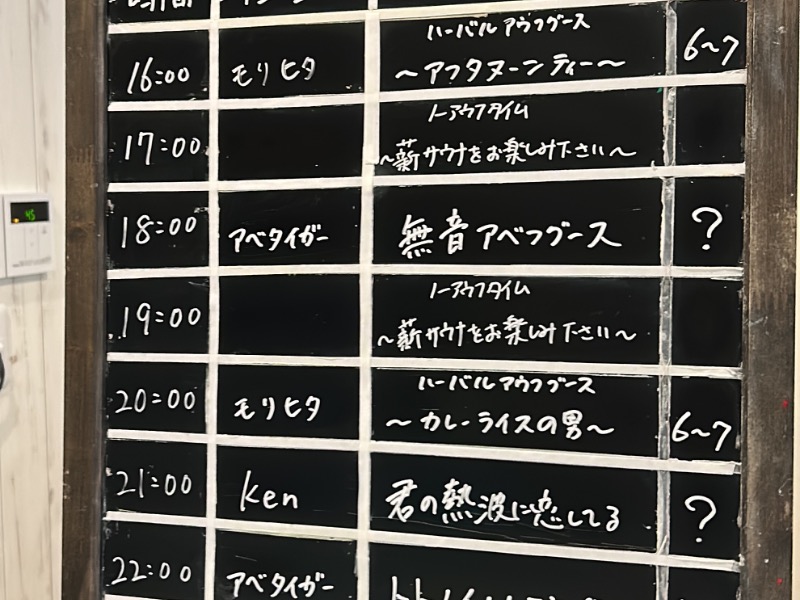 時間
16:00 モリヒタ ハーバルアウフグース 6〜7
〜アフタヌーンティー〜
17:00 ノーアウフタイム
〜薪サウナをお楽しみ下さい〜
18:00 アベタイガー 無音アベフグース ?
19:00 ノーアウフタイム
〜薪サウナをお楽しみ下さい〜
20:00 モリヒタ ハーバルアウフグース 6〜7
〜カレーライスの男〜
21:00 Ken 君の熱波に恋してる ?
22:00 アベタイガー
45